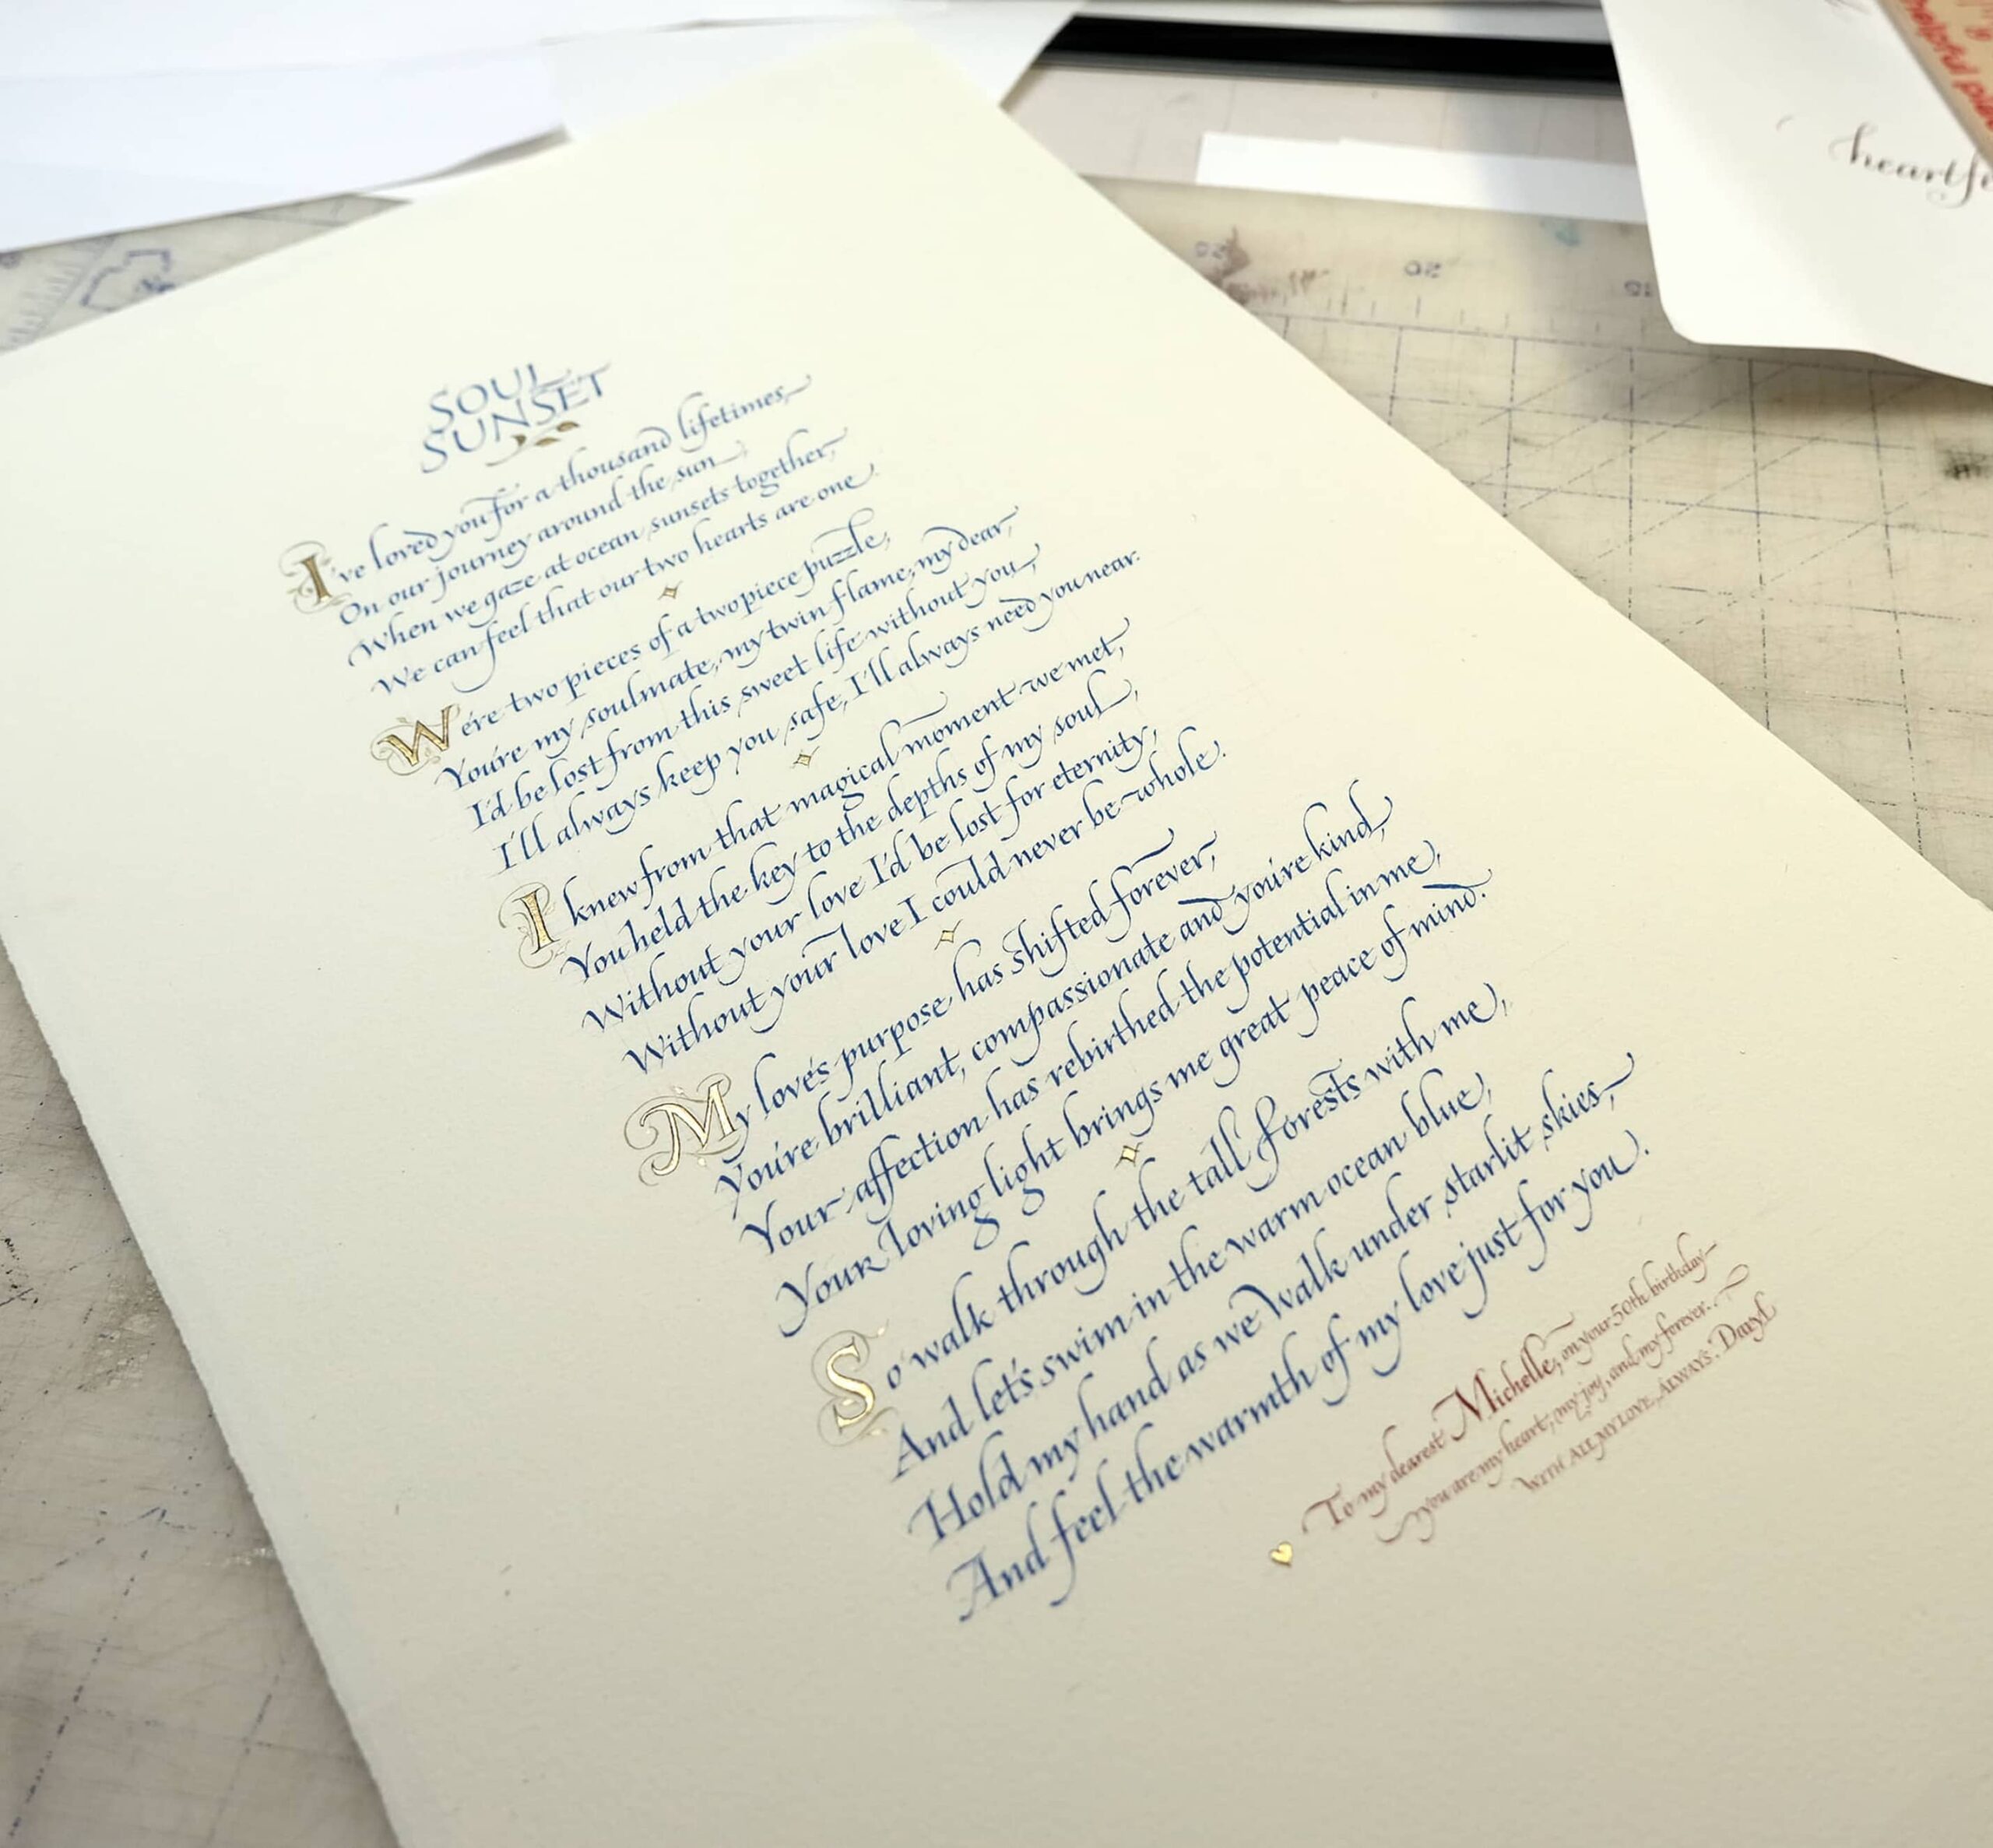 SOUL
SUNSET
I've loved you for a thousand lifetimes,
On our journey around the sun,
When we gaze at ocean sunsets together,
We can feel that our two hearts are one.
We're two pieces of a two piece puzzle,
You're my soulmate, my twin flame, my dear,
I'd be lost from this sweet life without you,
I'll always keep you safe, I'll always need you near.
I knew from that magical moment we met,
You held the key to the depths of my soul,
Without your love I'd be lost for eternity,
Without your love I could never be whole.
My love's purpose has shifted forever,
You're brilliant, compassionate and you're kind,
Your affection has rebirthed the potential in me,
Your loving light brings me great peace of mind.
So walk through the tall forests with me,
And let's swim in the warm ocean blue,
Hold my hand as we walk under starlit skies,
And feel the warmth of my love just for you.
To my dearest Michelle, on your 50th birthday—
you are my heart, my joy, and my forever.
WITH ALL MY LOVE, ALWAYS, Daryl
20